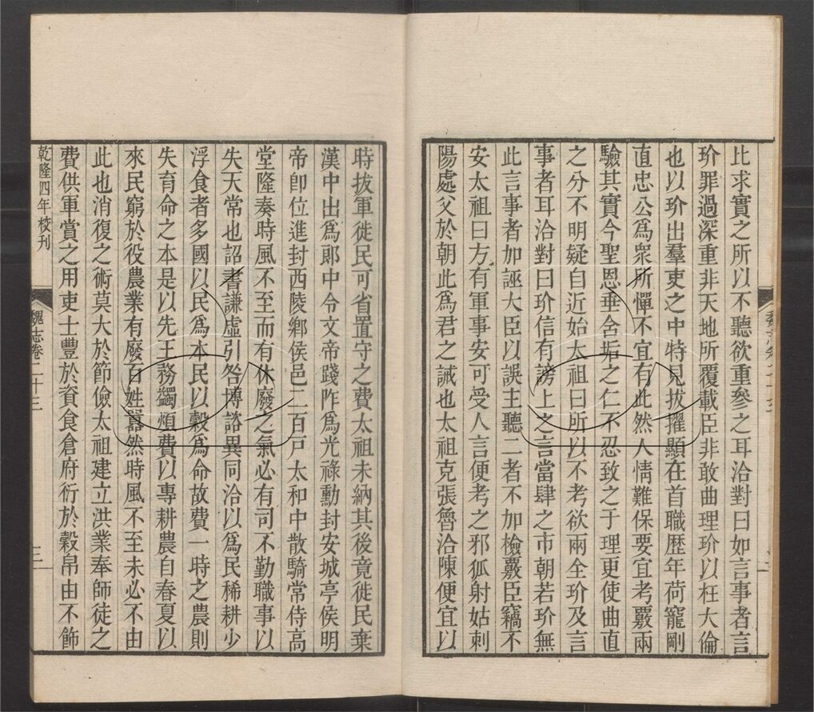 比求實之所以不聽欲重參之耳洽對曰如言事者言
玠罪過深重非天地所覆載臣非敢曲理玠以枉大倫
也以玠出羣吏之中特見拔擢顯在首職歷年荷寵剛
直忠公爲衆所憚不宜有此然人情難保要宜考覈兩
驗其實今聖恩垂含垢之仁不忍致之于理更使曲直
之分不明疑自近始太祖曰所以不考欲兩全玠及言
事者耳洽對曰玠信有謗上之言當肆之市朝若玠無
此言事者加誣大臣以誤主聽二者不加檢覈臣竊不
安太祖曰方有軍事安可受人言便考之邪狐射姑刺
陽處父於朝此爲君之誡也太祖克張魯洽陳便宜以
時拔軍徙民可省置守之費太祖未納其後竟徙民棄
漢中出爲郎中令文帝踐阼爲光祿勳封安城亭侯明
帝卽位進封西陵鄉侯邑二百戸太和中散騎常侍高
堂隆奏時風不至而有休廢之氣必有司不勤職事以
失天常也詔書謙虛引咎博諮異同洽以爲民稀耕少
浮食者多國以民爲本民以穀爲命故費一時之農則
失育命之本是以先王務蠲煩費以專耕農自春夏以
來民窮於役農業有廢百姓囂然時風不至未必不由
此也消復之術莫大於節儉太祖建立洪業奉師徒之
費供軍賞之用吏士豐於資食倉府衍於穀帛由不飾
乾隆四年校刊
魏志卷二十三
三